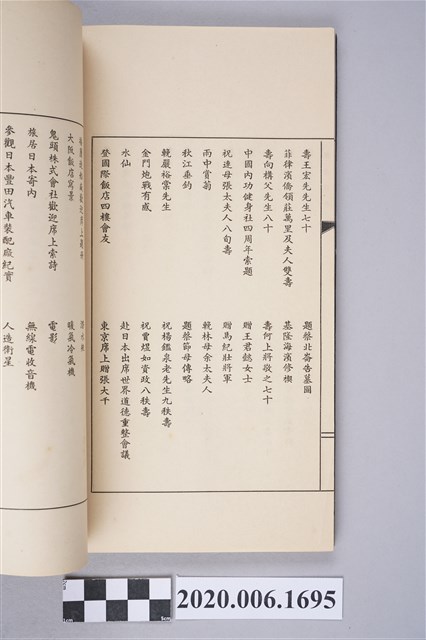 壽王宏先先生七十
題蔡北崙告墓圖
菲律濱僑領莊萬里及夫人雙壽
基隆海濱修禊
壽向構父先生八十
壽何上將敬之七十
中國內功健身社四周年索題
贈王君懿女士
祝連母張太夫人八旬壽
贈馬紀壯將軍
雨中賞菊
輓林母余太夫人
秋江垂釣
題蔡節母傳略
輓嚴裕棠先生
祝楊鑑泉老先生九秩壽
金門炮戰有感
祝賈煜如資政八秩壽
水仙
赴日本出席世界道德重整會議
登國際飯店四樓會友
東京席上贈張大千
大阪飯店寫景
暖氣冷氣機
鬼頭株式會社歡迎席上索詩
電影
旅居日本寄內
無線電收音機
參觀日本豐田汽車裝配廠紀實
人造衛星
2020.006.1695
1cm
5cm